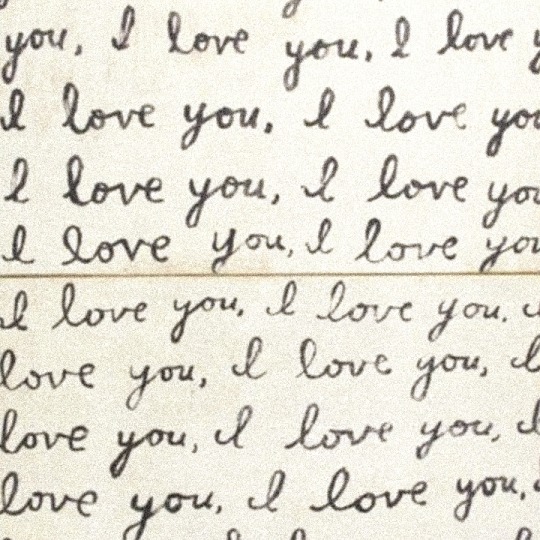 you, I love you, I love y
I love you, I love you
I love you, I love you
I love you, I love you
I love you, I love you,
love you, I love you, I
love you, I love you, I
love you, I love you,